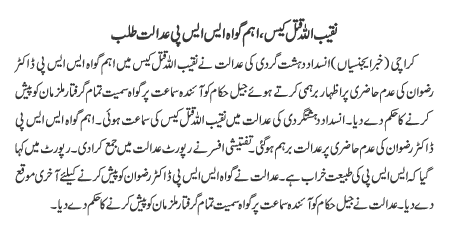 نقیب اللہ قتل کیس، اہم گواہ ایس ایس پی عدالت طلب
کراچی (خبر ایجنسیاں) انسداد دہشت گردی کی عدالت نے نقیب اللہ قتل کیس میں اہم گواہ ایس ایس پی ڈاکٹر
رضوان کی عدم حاضری پر اظہار برہمی کرتے ہوئے جیل حکام کو آئندہ سماعت پر گواہ سمیت تمام گرفتار ملزمان کو پیش
کرنے کا حکم دے دیا۔ انسداد دہشتگردی کی عدالت میں نقیب اللہ قتل کیس کی سماعت ہوئی۔ اہم گواہ ایس ایس پی
ڈاکٹر رضوان کی عدم حاضری پر عدالت برہم ہوگئی۔ تفتیشی افسر نے رپورٹ عدالت میں جمع کرادی۔ رپورٹ میں کہا
گیا کہ ایس ایس پی کی طبیعت خراب ہے۔ عدالت نے گواہ ایس ایس پی ڈاکٹر رضوان کو پیش کرنے کیلئے آخری موقع
دے دیا۔ عدالت نے جیل حکام کو آئندہ سماعت پر گواہ سمیت تمام گرفتار ملزمان کو پیش کرنے کا حکم دے دیا۔